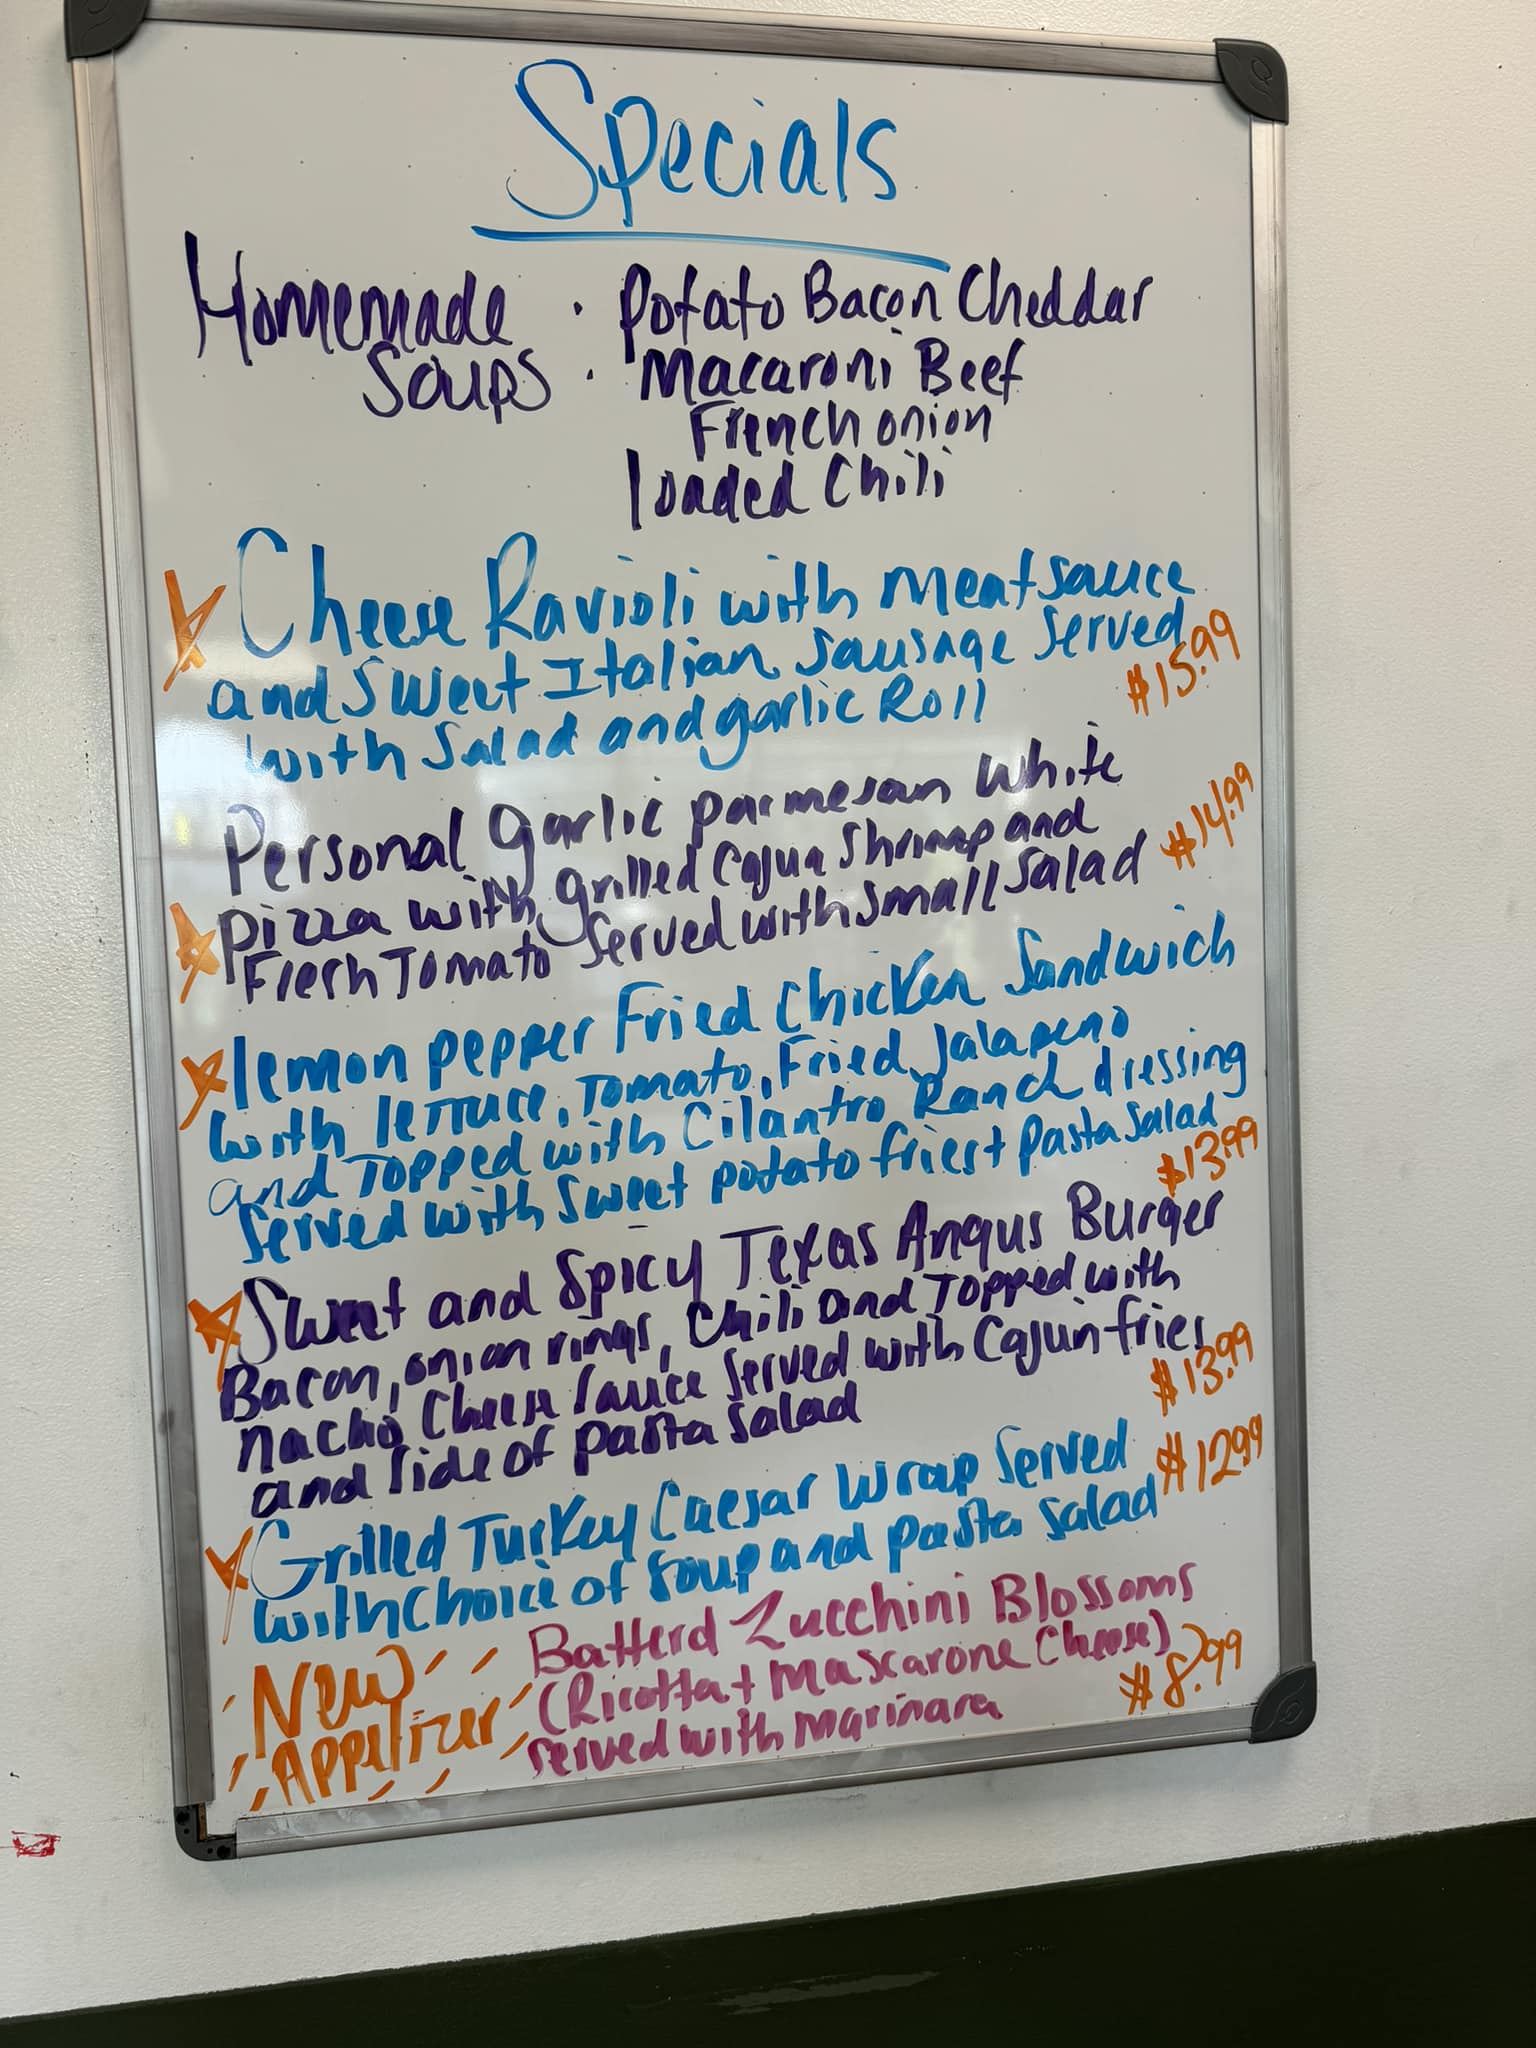 Specials
Homemade Soups
· Potato Bacon Cheddar
· Macaroni Beef
French onion
loaded Chili
Cheese Ravioli with meat sauce
and Sweet Italian Sausage Served
with Salad and garlic Roll
$15.99
Personal garlic parmesan White
Pizza with grilled Cajun Shrimp and
Fresh Tomato Served with small Salad
$14.99
lemon pepper Fried Chicken Sandwich
with lettuce, Tomato, Fried Jalapeno
and Topped with Cilantro Ranch dressing
Served with Sweet potato fries + Pasta Salad
$13.99
Sweet and Spicy Texas Angus Burger
Bacon, onion rings, Chili and Topped with
nacho Cheese Sauce Served with Cajun fries
and side of pasta Salad
$13.99
Grilled Turkey Caesar Wrap Served
with choice of soup and pasta Salad
$12.99
New
Appetizer
Batterd Zucchini Blossoms
(Ricotta + Mascarone Cheese)
served with marinara
$8.99